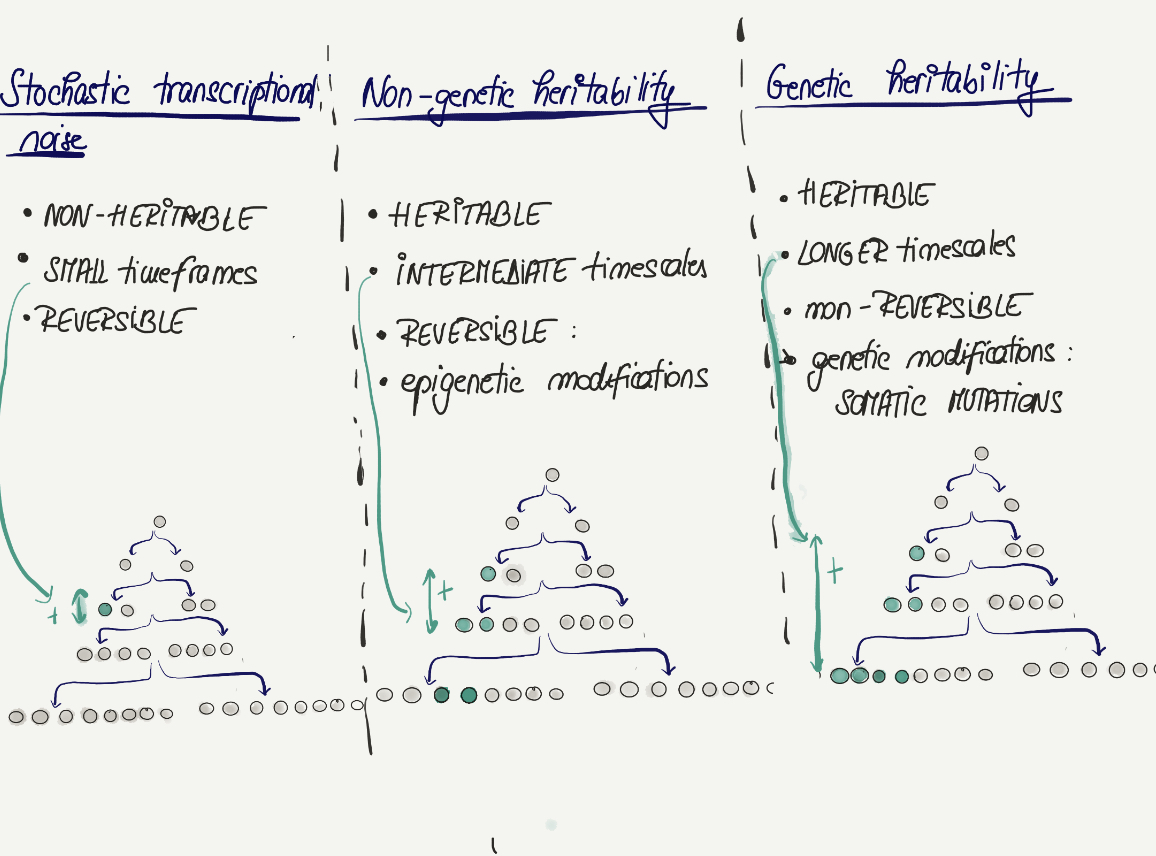 Stochastic transcriptional
noise
• NON-HERITABLE
• SMALL timeframes
• REVERSIBLE
+
Non-genetic heritability
• HERITABLE
• INTERMEDIATE timescales
• REVERSIBLE :
• epigenetic modifications
+
Genetic heritability
• HERITABLE
• LONGER timescales
• non-REVERSIBLE
• genetic modifications :
SOMATIC MUTATIONS
+